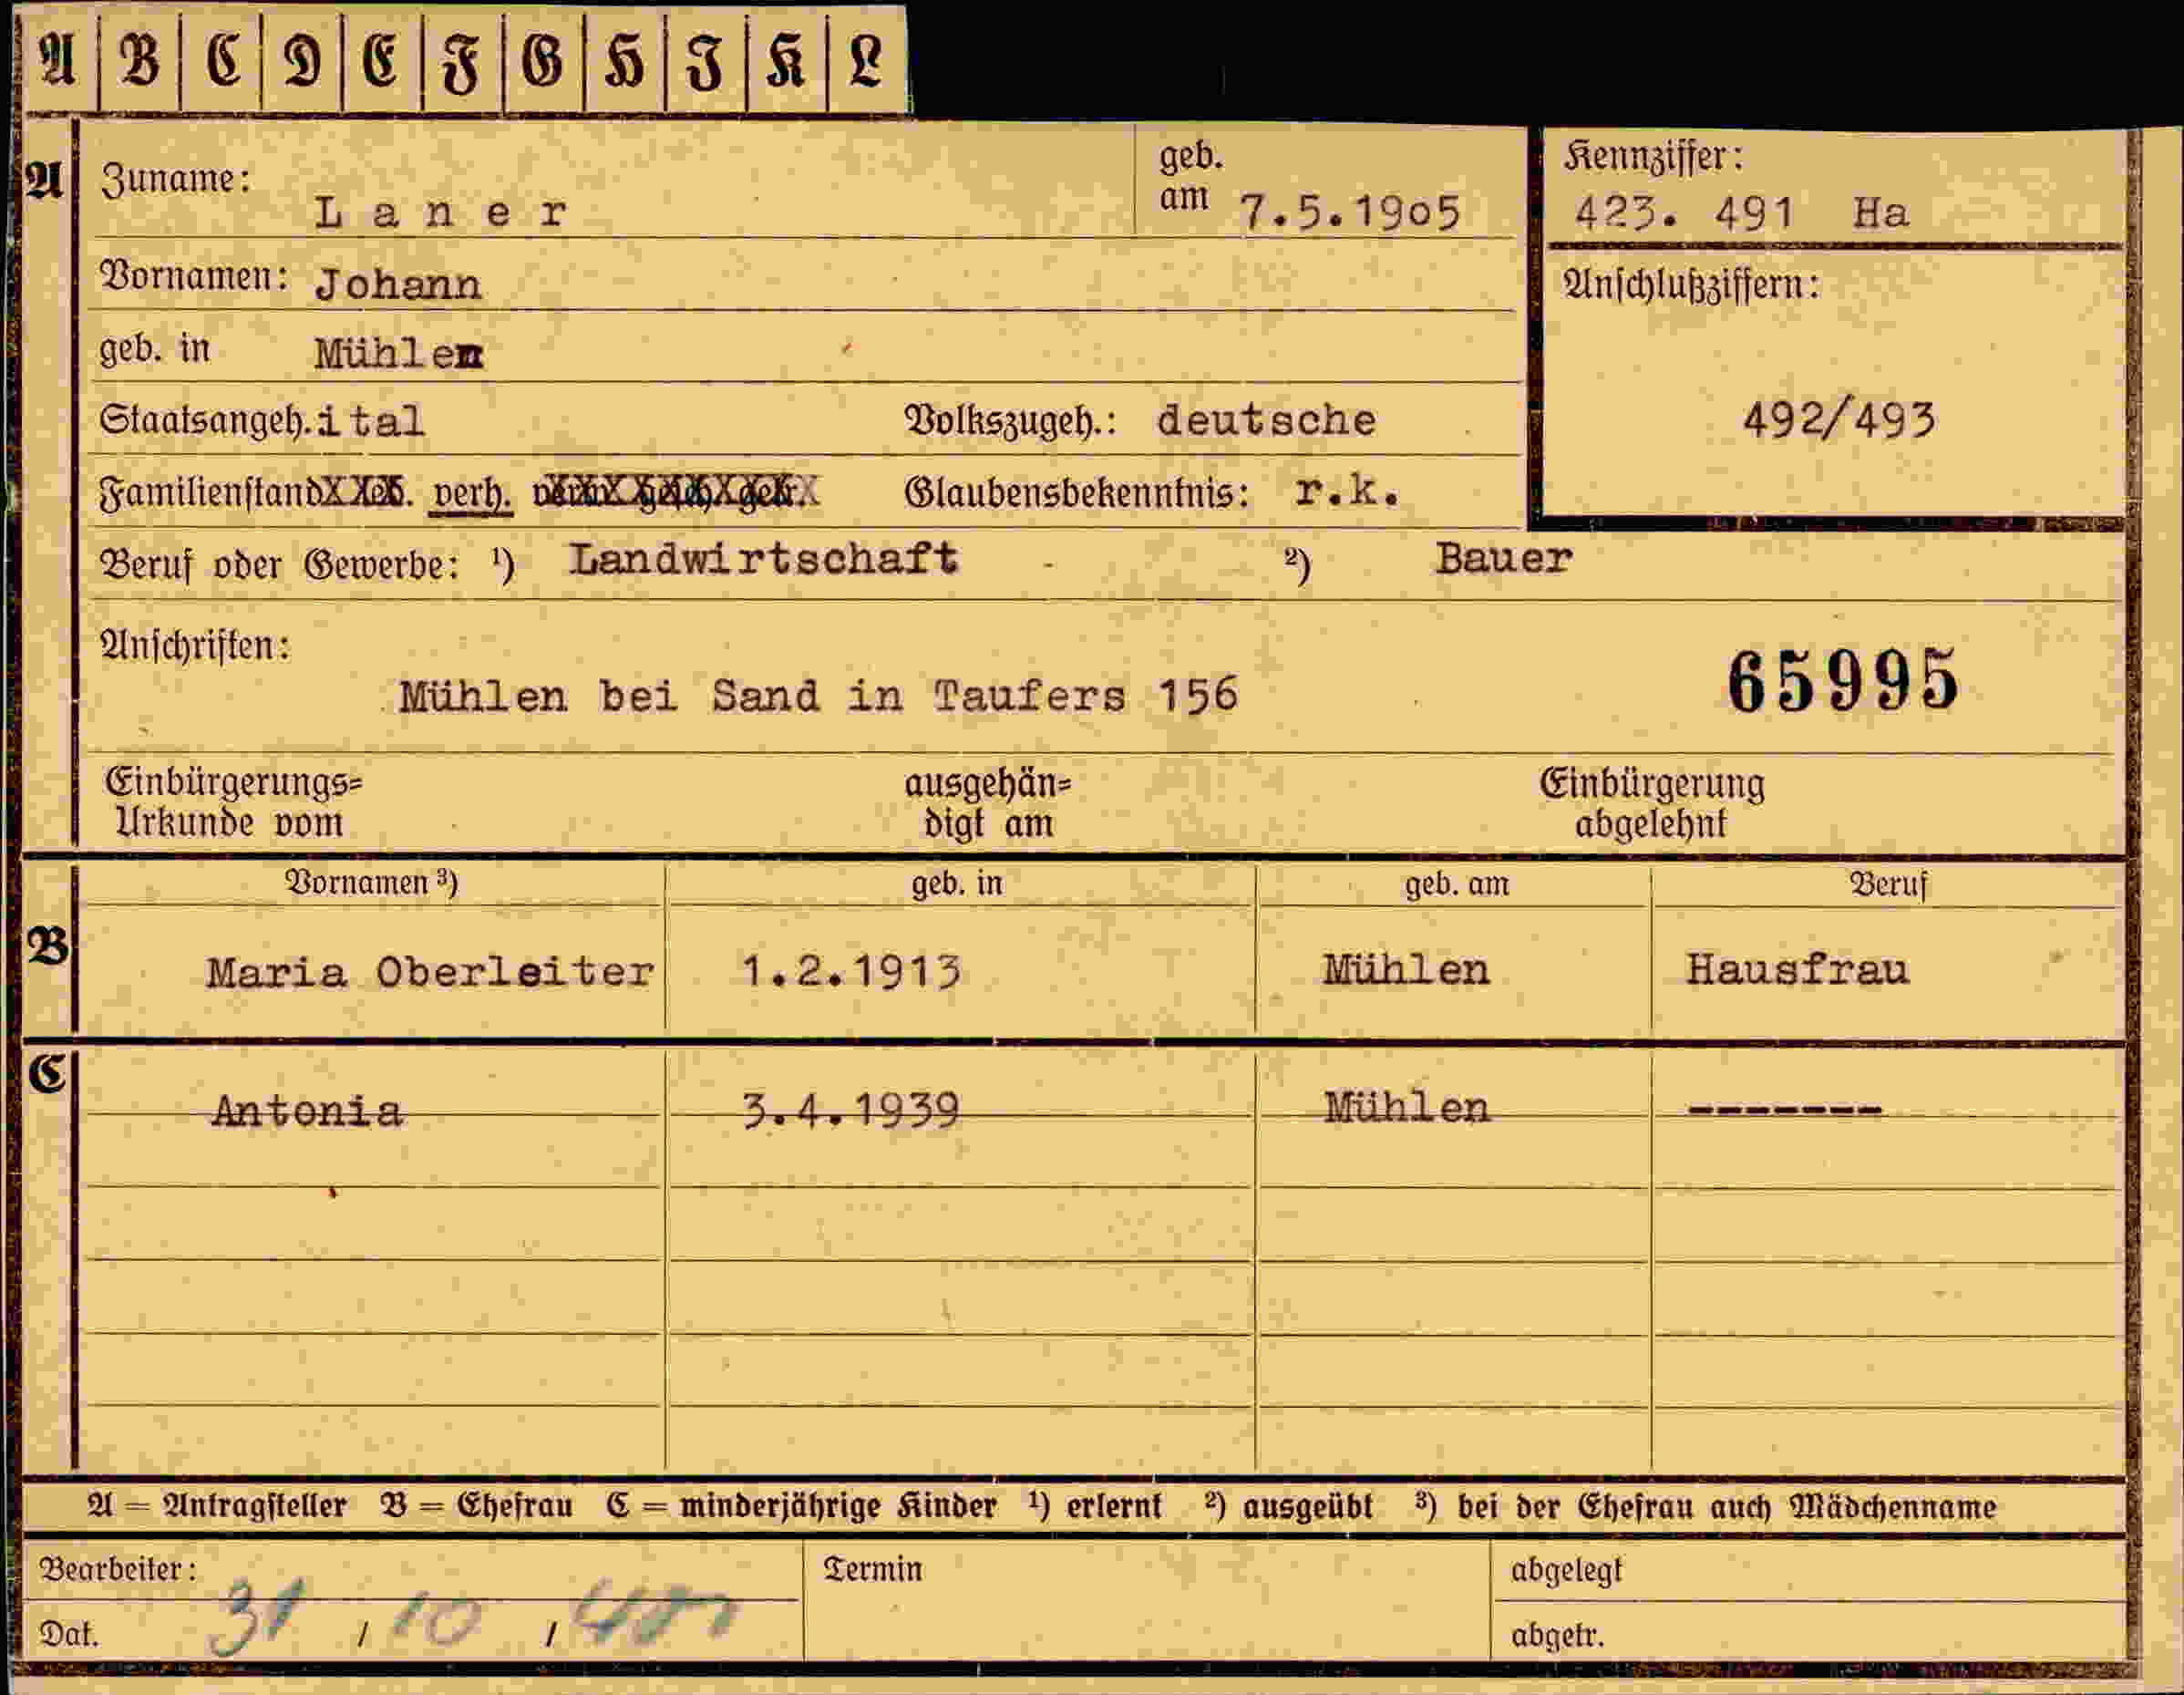 A B C D E F G H I K L
A Zuname: Laner geb. am 7.5.1905 Kennziffer: 423. 491 Ha
Vornamen: Johann Anschlußziffern:
geb. in Mühlen
Staatsangeh. ital Volkszugeh.: deutsche 492/493
Familienstand led. verh. verw. gesch. getr. Glaubensbekenntnis: r.k.
Beruf oder Gewerbe: ¹) Landwirtschaft ²) Bauer
Anschriften:
Mühlen bei Sand in Taufers 156 65995
Einbürgerungs= ausgehän= Einbürgerung
Urkunde vom digt am abgelehnt
Vornamen ³) geb. in geb. am Beruf
B Maria Oberleiter 1.2.1913 Mühlen Hausfrau
C Antonia 3.4.1939 Mühlen -------
A = Antragsteller B = Ehefrau C = minderjährige Kinder ¹) erlernt ²) ausgeübt ³) bei der Ehefrau auch Mädchenname
Bearbeiter: Termin abgelegt
Dat. 31 / 10 / abgetr.